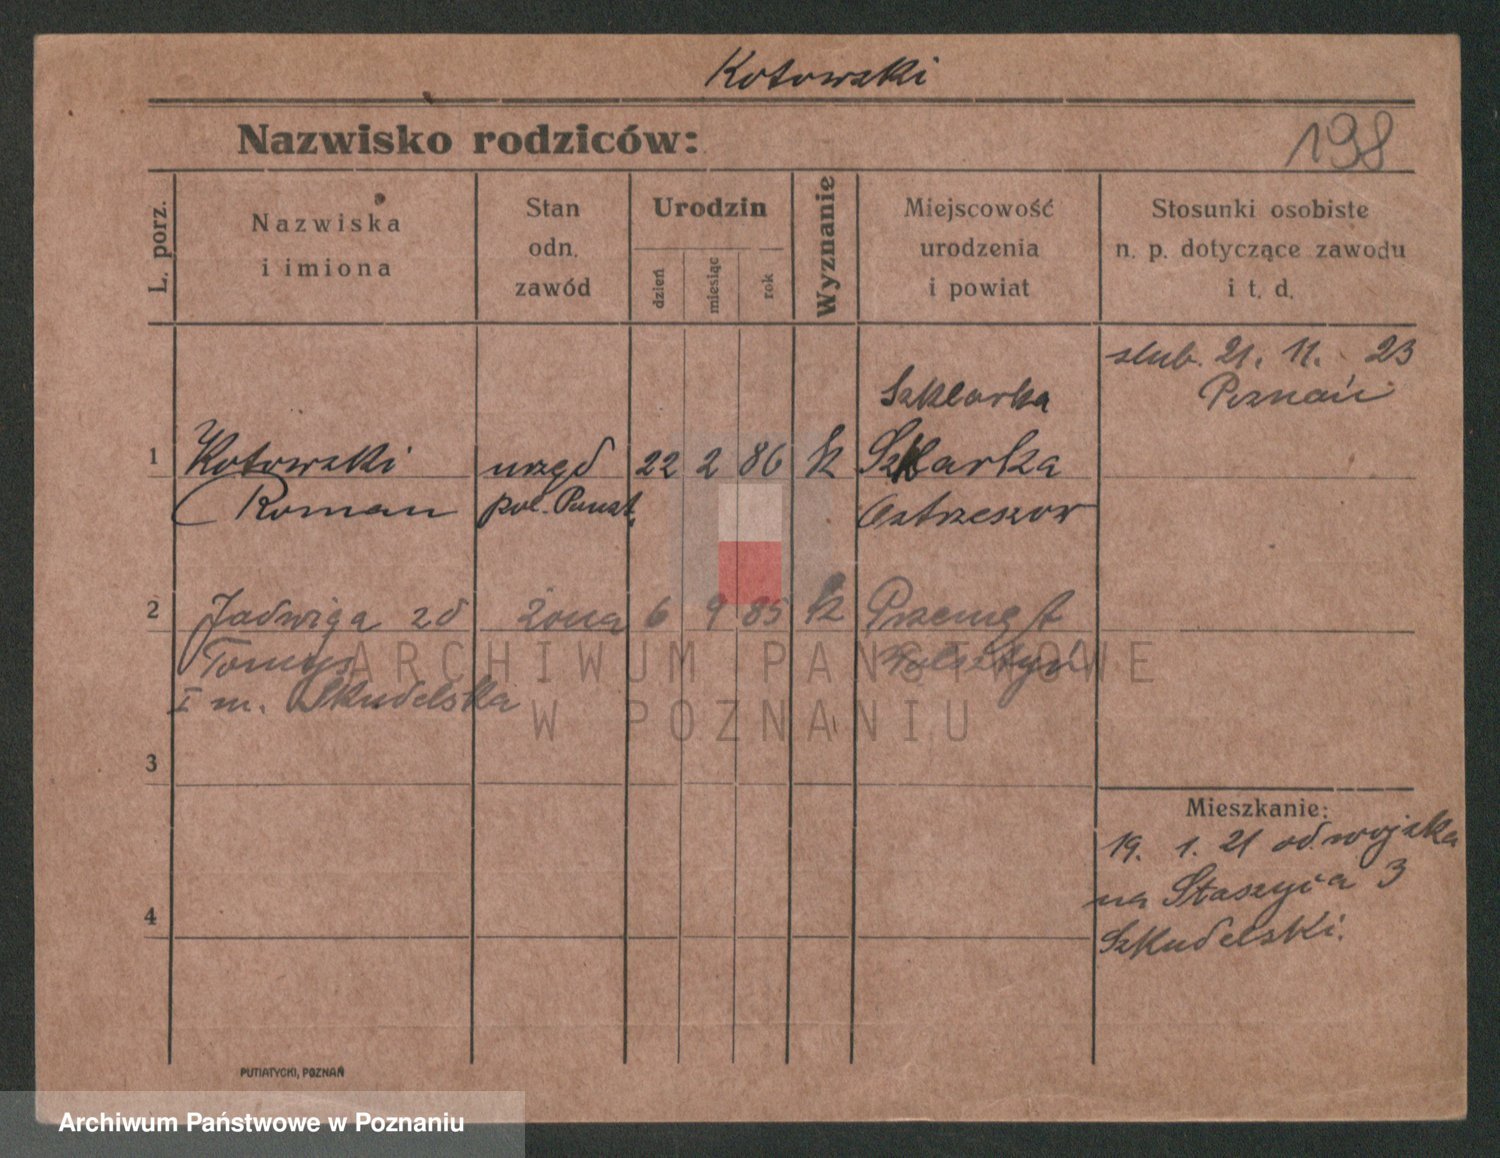 Kotowski
Nazwisko rodziców:
198
L. porz.
Nazwiska
i imiona
Stan
odn.
zawód
Urodzin
dzień
miesiąc
rok
Wyznanie
Miejscowość
urodzenia
i powiat
Stosunki osobiste
n. p. dotyczące zawodu
i t. d.
slub. 21. 11. 23
Poznań
Szklarka
1 Kotowski urzęd 22 2 86 k Szklarka
Roman pol. Państ. Ostrzeszow
2 Jadwiga zd żona 6 9 85 k Przemęt
Tomys Wolsztyn
I m. Skudelska
3
4
Mieszkanie:
19. 1. 21 od wojska
na Staszyca 3
Szkudelski.
PUTIATYCKI, POZNAŃ
ARCHIWUM PAŃSTWOWE
W POZNANIU
Archiwum Państwowe w Poznaniu